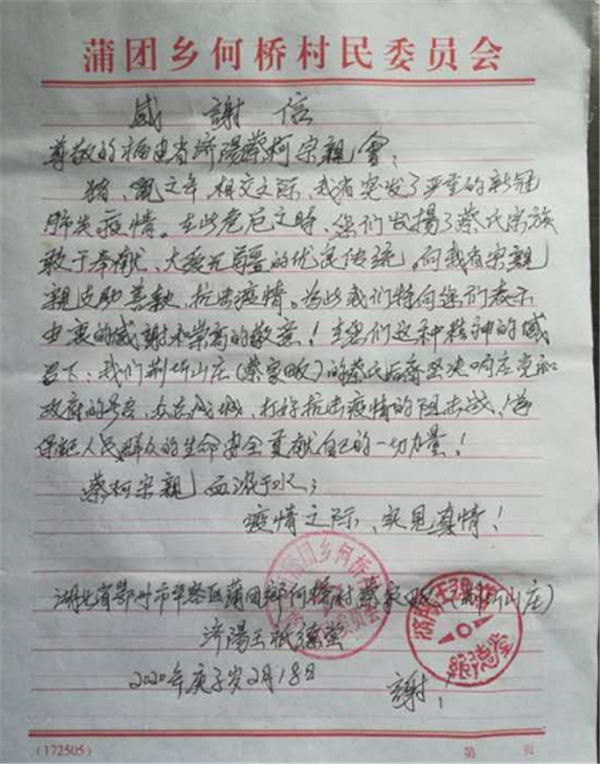 蒲团乡何桥村民委员会
感謝信
尊敬的福建省济陽蔡柯宗親會：
猪、鼠之年，相交之际，我省突发了严重的新冠
肺炎疫情。在此危厄之时，您们发揚了蔡氏宗族
敢于奉献、大爱无疆的优良传统。向我省宗親
親支助善款，抗击疫情。为此我们特向您们表示
由衷的感謝和崇高的敬意！在您们这种精神的感
召下：我们荆圻山庄(蔡家畈)的蔡氏后裔坚决响应党和
政府的号召，众志成城，打好抗击疫情的阻击战，为
保护人民群众的生命安全贡献自己的一切力量！
蔡柯宗親，血浓于水；
疫情之际，实見真情！
湖北省鄂州市华容区蒲团鄉何桥村蔡家畈(荆圻山庄)
济陽王祇德堂
2020年庚子岁2月18日
謝！
(172505)
第 页